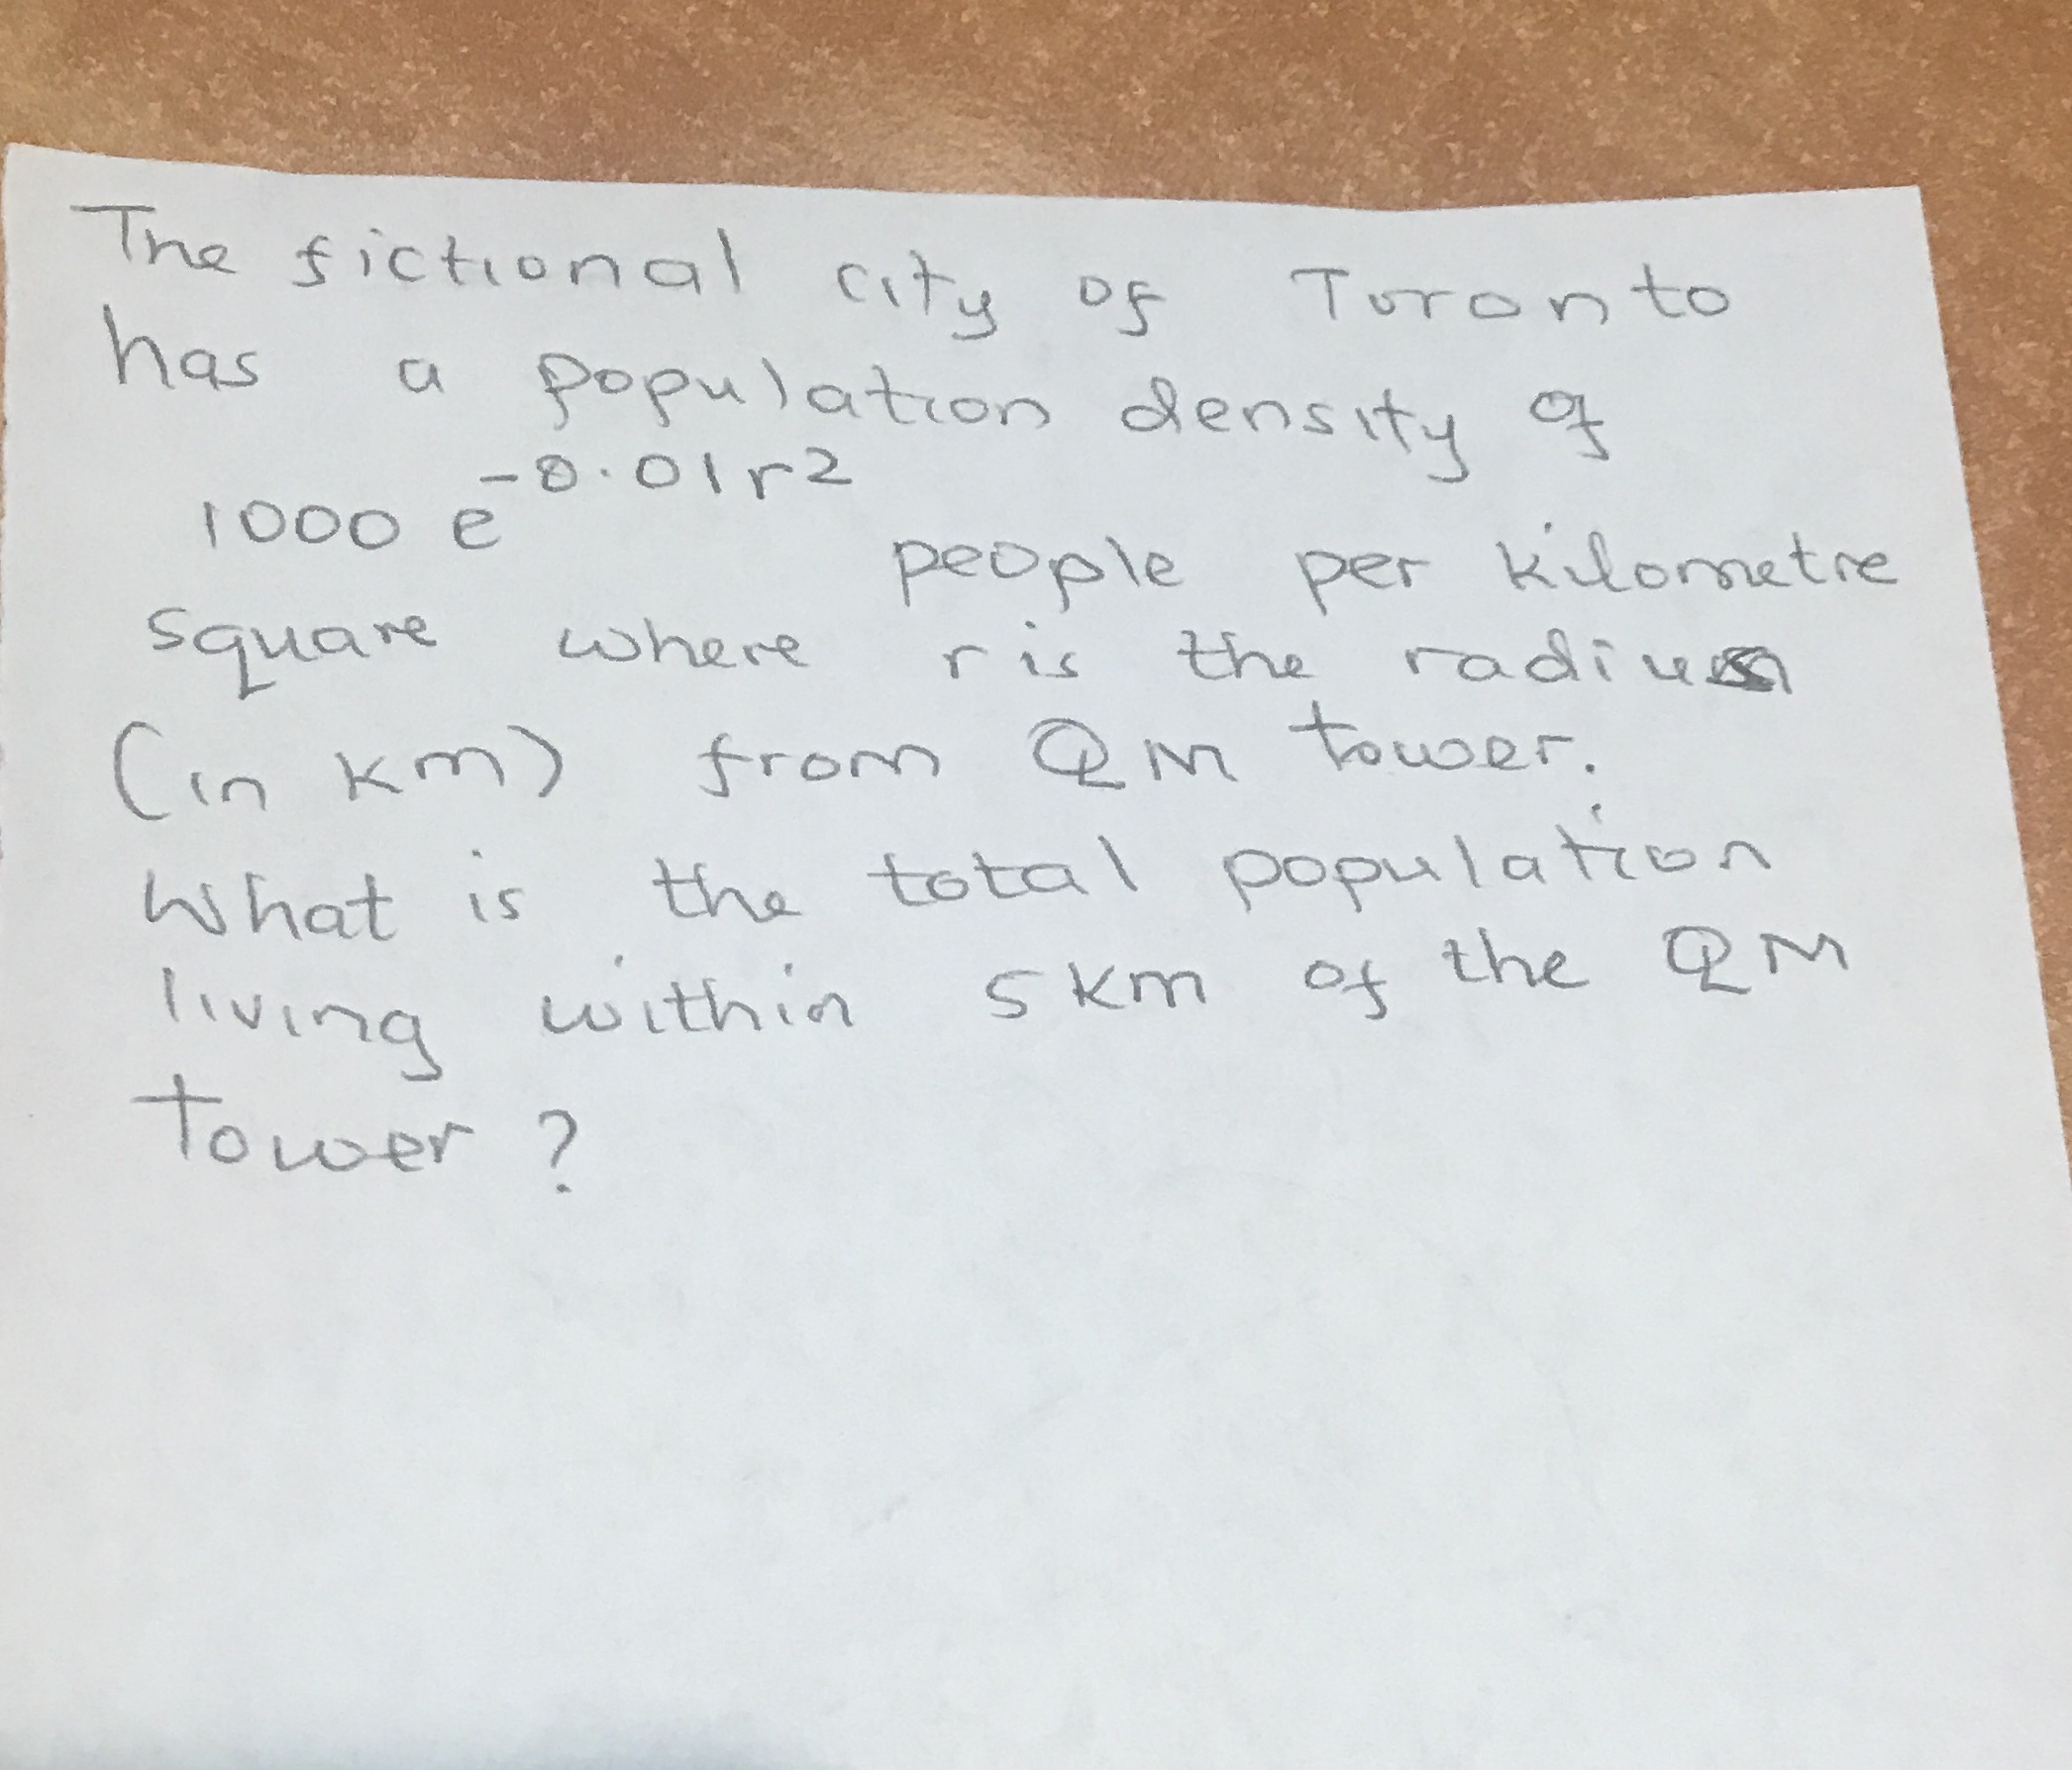 The fictional city of Turonto
has a population density of
1000 e^-0.01r2 people per kilometre
square where r is the radius
(in km) from QM tower.
What is the total population
living within 5km of the QM
Tower?